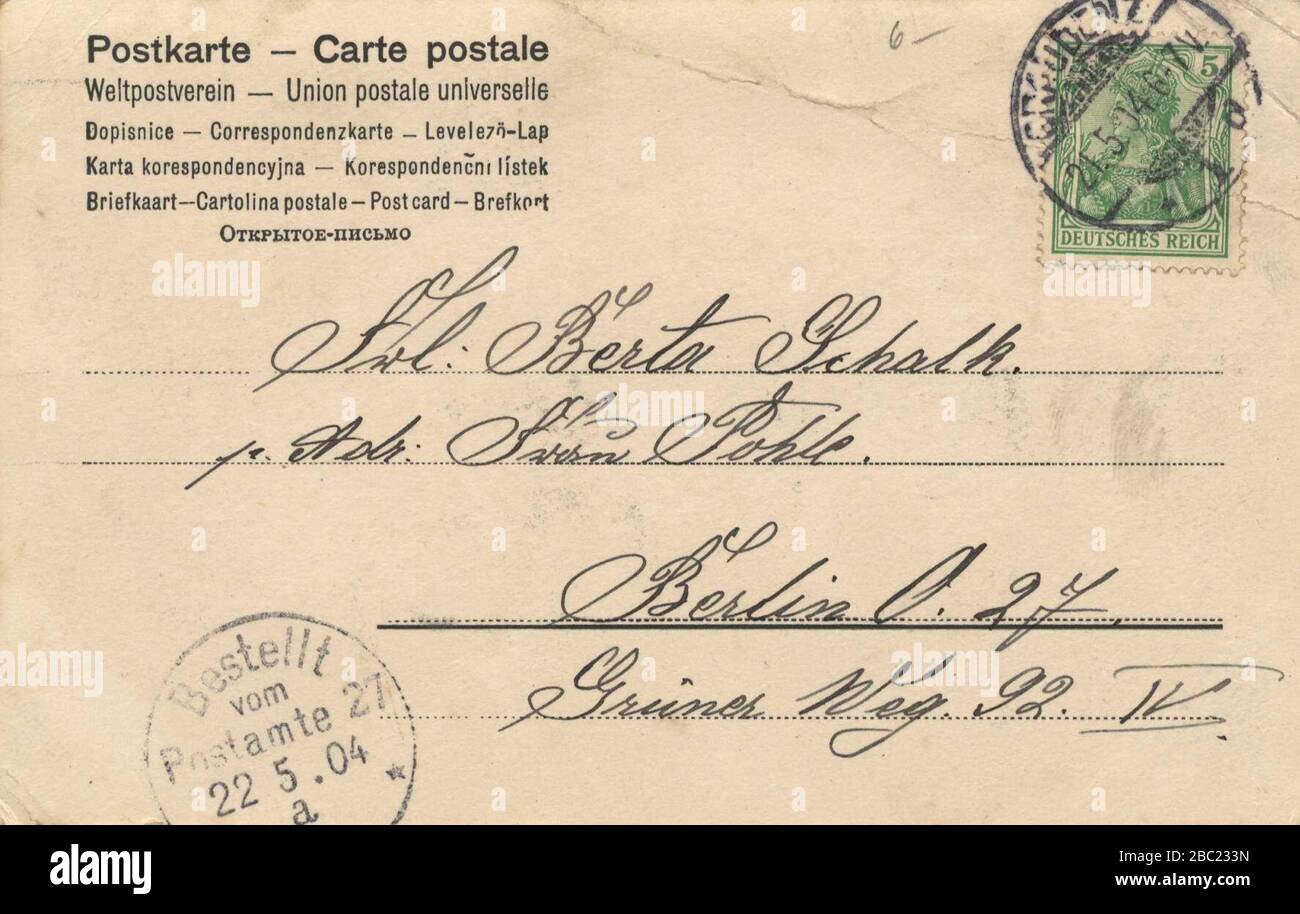 Postkarte – Carte postale
Weltpostverein — Union postale universelle
Dopisnice — Correspondenzkarte — Levelező-Lap
Karta korespondencyjna — Korespondenčni lístek
Briefkaart—Cartolina postale—Post card—Brefkort
Открытое-письмо
6–
GRAUDENZ
21.5.04.6-7N.
5
DEUTSCHES REICH
Frl. Berta Schalk.
p. Adr. Frau Pohle.
Berlin O. 27
Grüner Weg. 92. IV.
Bestellt
vom
Postamte 27
22 5.04
a
alamy
Image ID: 2BC233N
www.alamy.com